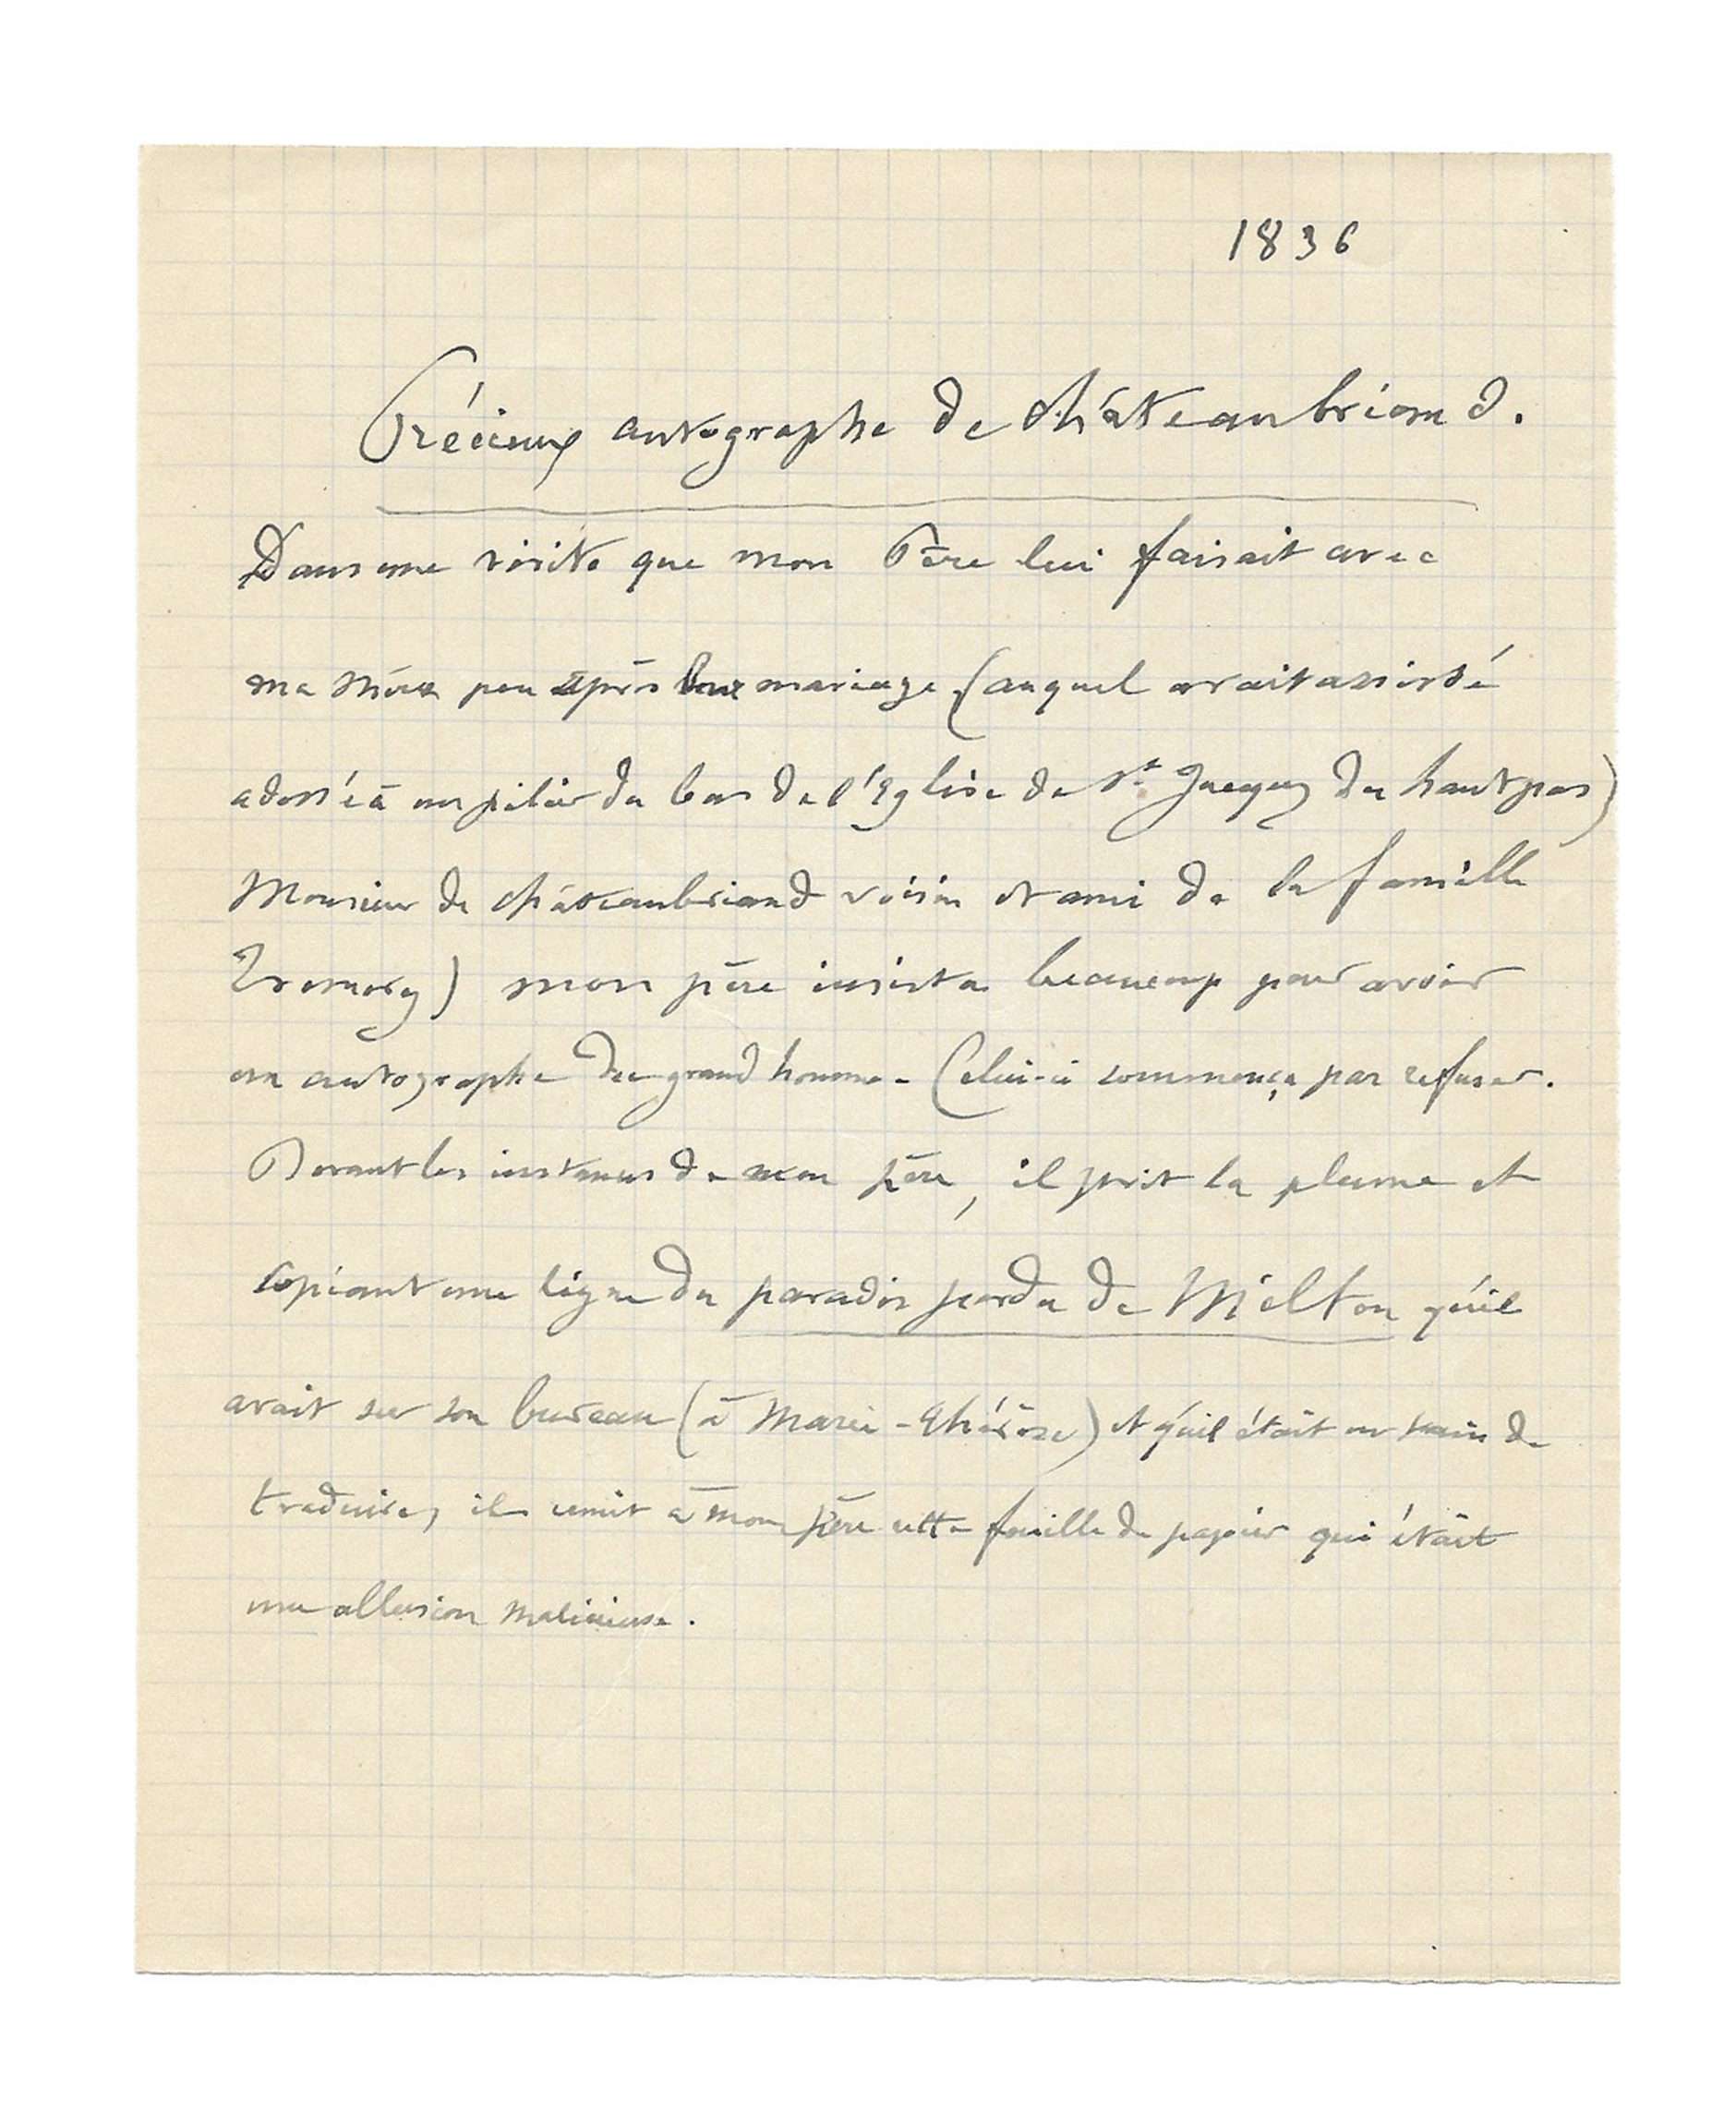 1836
Précieux autographe de Châteaubriand.
Dans une visite que mon Père lui faisait avec
ma Mère peu après leur mariage (auquel avait assisté
adossé à un pilier du bas de l'Eglise de St Jacques du haut pas)
Monsieur de Châteaubriand voisin et ami de la famille
mon père insista beaucoup pour avoir
un autographe du grand homme - Celui-ci commença par refuser.
Devant les instances de mon père, il prit la plume et
copiant une ligne du paradis perdu de Milton qu'il
avait sur son bureau (à Marie-Thérèse) et qu'il était en train de
traduire, il remit à mon père cette feuille de papier qui était
une allusion malicieuse.